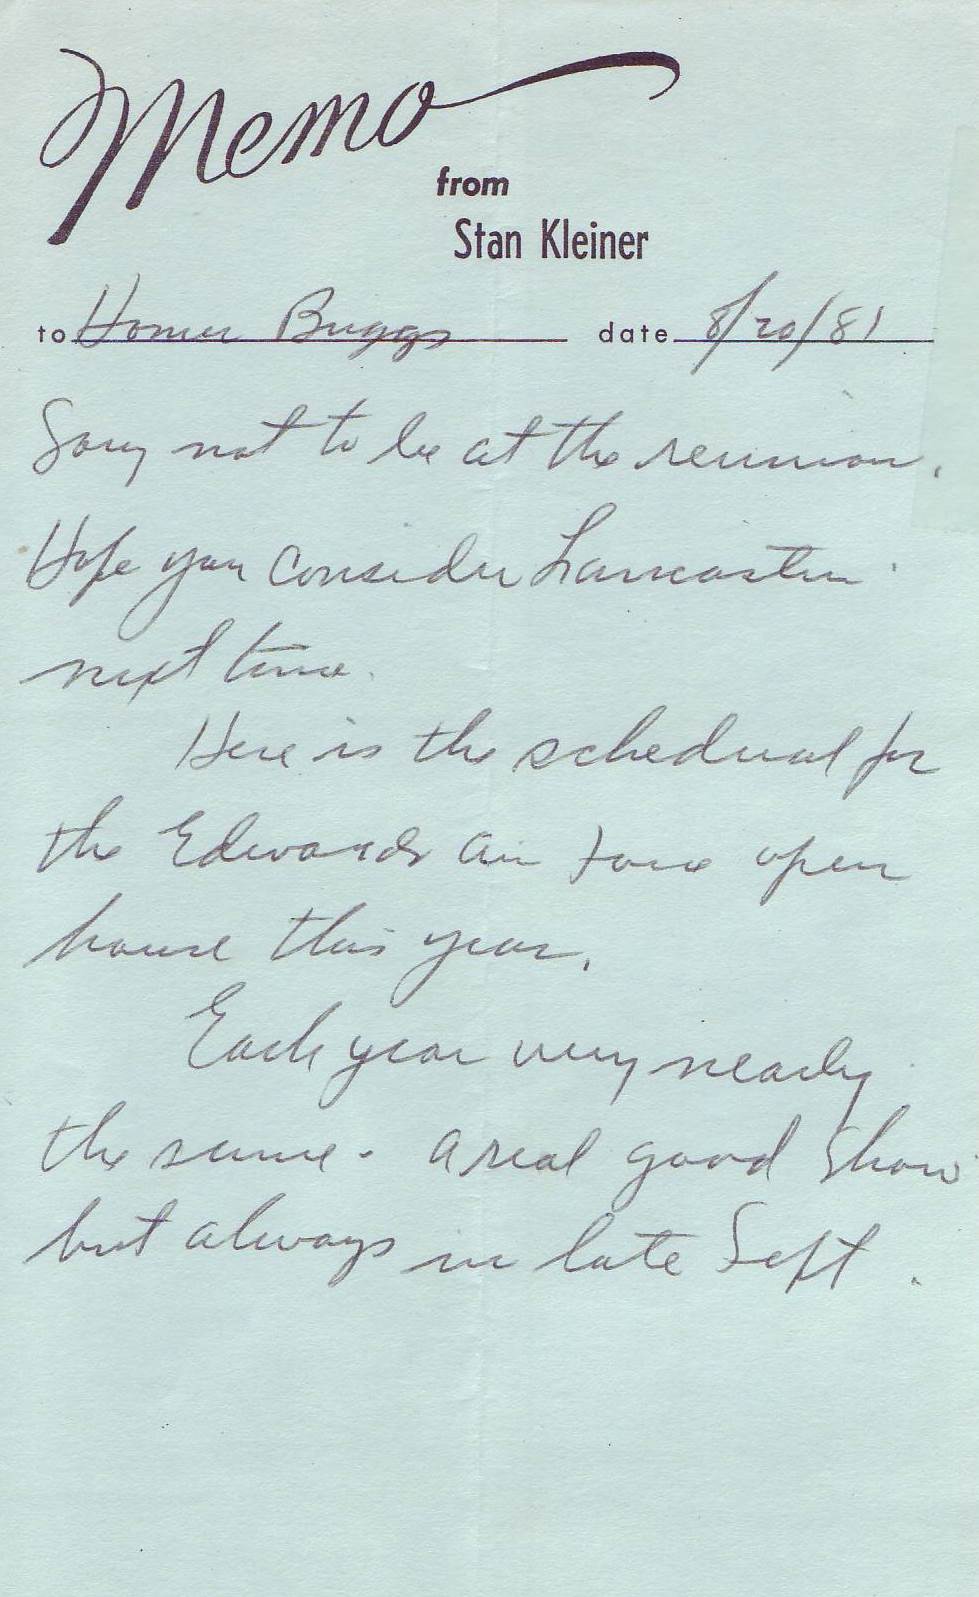 Memo
from
Stan Kleiner
to Homer Buggs date 8/20/81
Sorry not to be at the reunion.
Hope you consider Lancaster
next time.
Here is the schedual for
the Edwards Air Force open
house this year.
Each year very nearly
the same - a real good show
but always in late Sept.